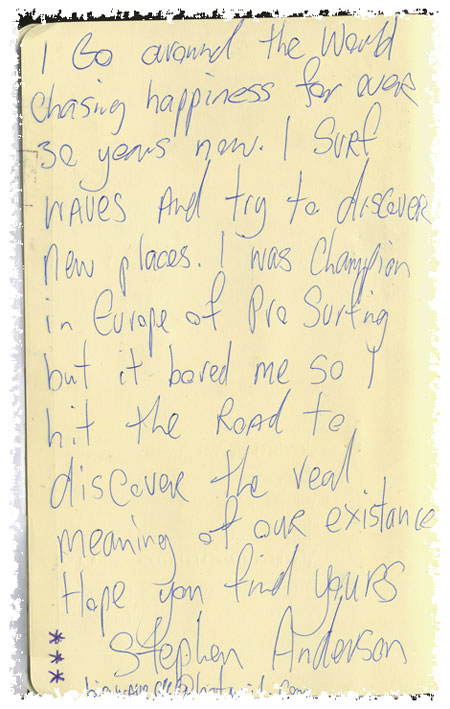 I Go around the World
Chasing happiness for over
30 years now. I Surf
waves And try to discover
new places. I was Champion
in Europe of Pro Surfing
but it bored me so I
hit the Road to
discover the real
meaning of our existance
Hope you find yours
*** Stephen Anderson